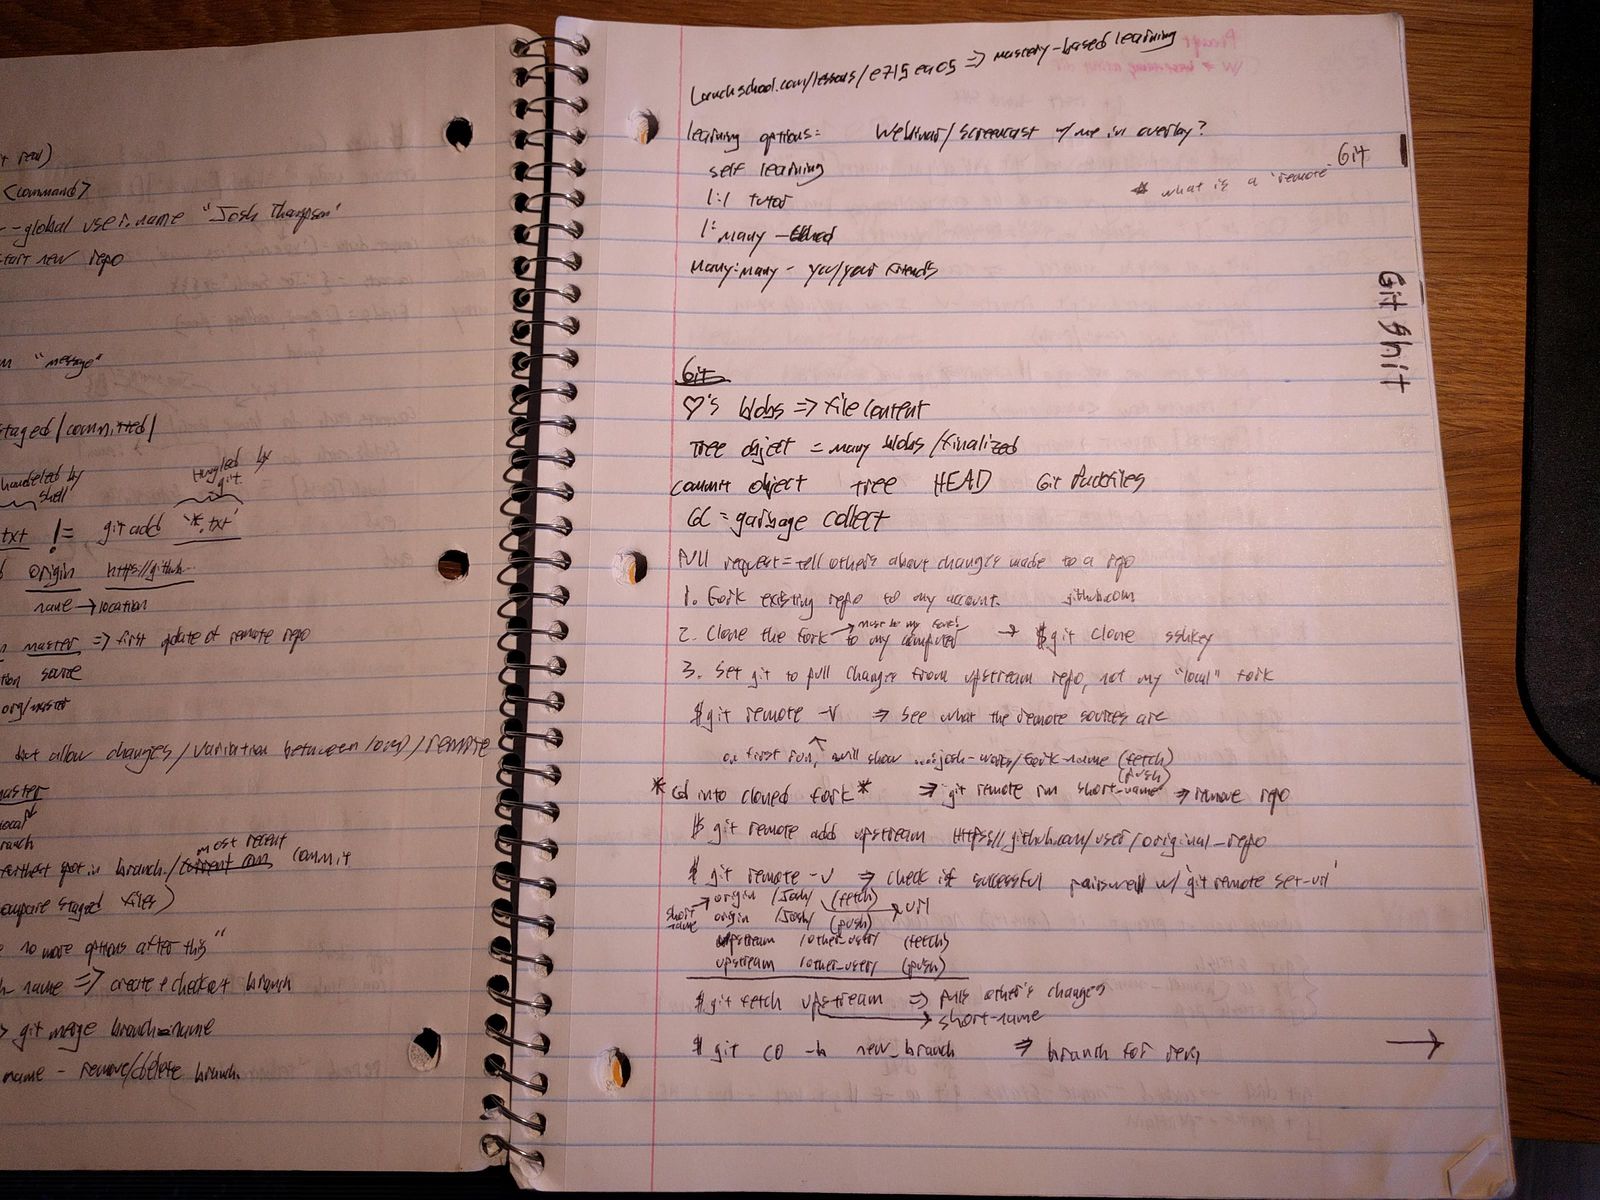 + real)
<command>
--global user.name "Josh Thompson"
start new repo
"message"
staged/committed/
handeled by shell
by git
txt != git add '*.txt'
origin https://github...
name → location
master => first update of remote repo
source
org/master
but allow changes/variation between /remote
master
local
branch
furthest spot in branch./current com most recent commit
compare staged files)
no more options after this"
name => create + checkout branch
git merge branch-name
name - remove/delete branch.
Launchschool.com/lessons/e715ea05 => mastery-based learning
learning options: Webinar/Screencast w/me in overlay?
self learning
1:1 tutor
1:many -
Many:many - you/your friends
Git
* what is a "remote"
Git Shit
Git
♡'s blobs => file content
Tree object = many blobs/finalized
commit object tree HEAD Git Packfiles
GC = garbage collect
Pull request = tell others about changes made to a repo
1. Fork existing repo to my account. github.com
2. Clone the fork to my computer → $git clone sshkey
→ must be my fork!
3. Set git to pull changes from upstream repo, not my "local" fork
$git remote -v => see what the remote sources are
on first run, ↑ will show ...josh-works/fork-name (fetch)
(push)
* cd into cloned fork * => git remote rm short-name => remove repo
$ git remote add upstream https://github.com/user/original_repo
$ git remote -v => check if successful pairs well w/ 'git remote set-url'
short name → origin /Josh/ (fetch) → url
origin /Josh/ (push)
upstream /other_user/ (fetch)
upstream /other_user/ (push)
$ git fetch upstream => pulls other's changes
→ short-name
$ git co -b new_branch => branch for
→